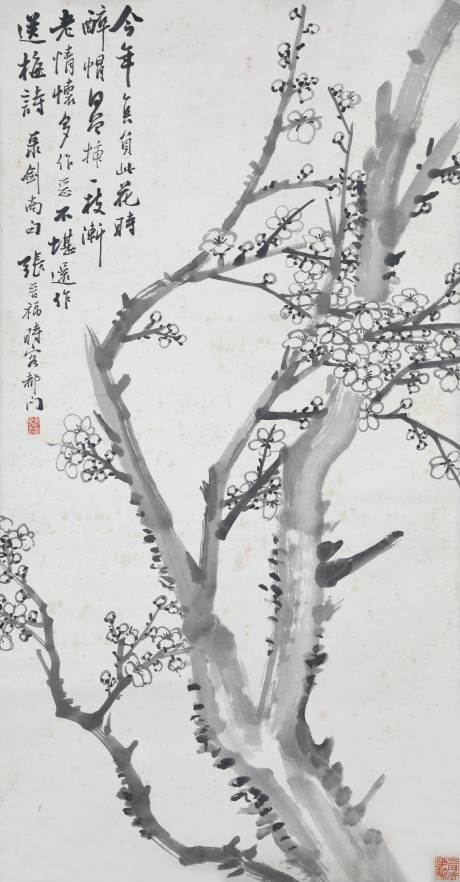 今年真負此花時
醉帽何曾插一枝漸
老情懷多作惡不堪還作
送梅詩 录劍南句 張晉福時客都門